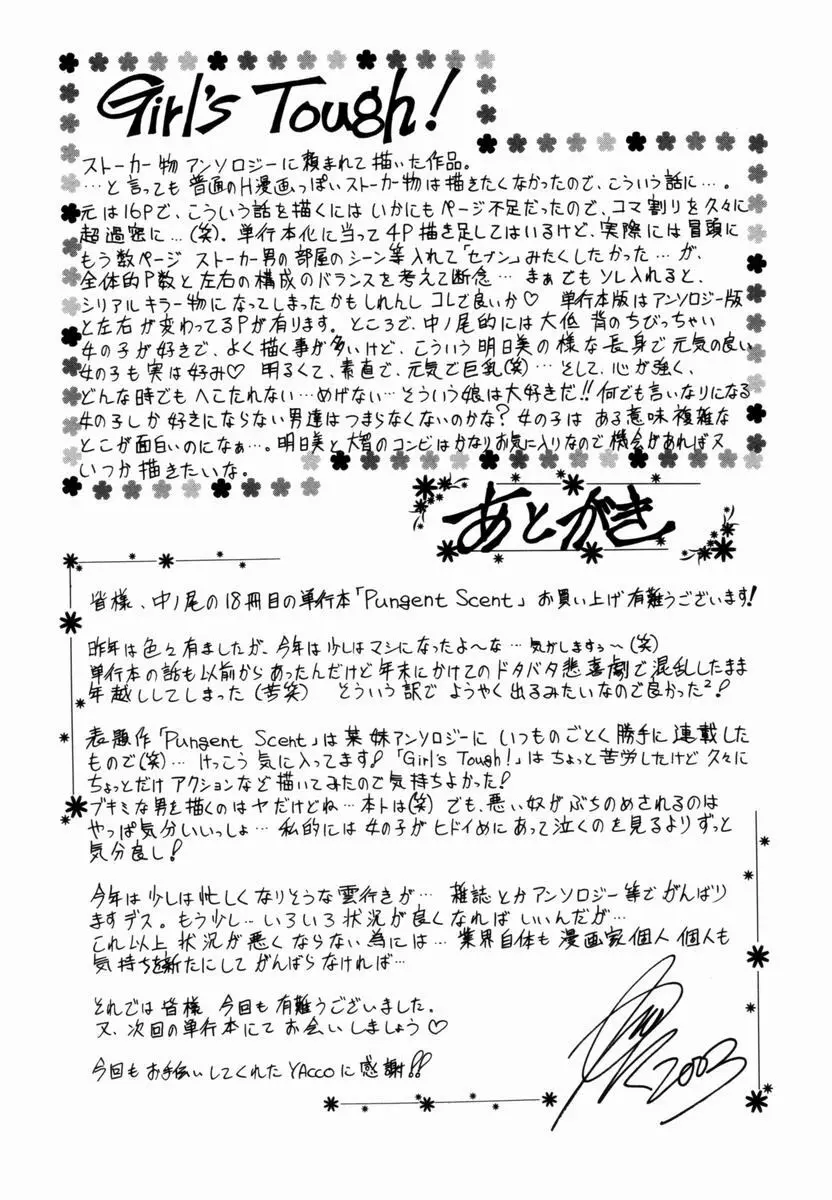 Girl's Tough!
ストーカー物アンソロジーに頼まれて描いた作品。
…と言っても普通のH漫画っぽいストーカー物は描きたくなかったので、こういう話に…。
元は16Pで、こういう話を描くにはいかにもページ不足だったので、コマ割りを久々に
超過密に…(笑)。単行本化に当って4P描き足してはいるけど、実際には冒頭に
もう数ページ ストーカー男の部屋のシーン等入れて「セブン」みたくしたかった…が、
全体的P数と左右の構成のバランスを考えて断念… まぁでもソレ入れると、
シリアルキラー物になってしまったかもしれんし コレで良いか♡ 単行本版はアンソロジー版
と左右が変わってるPが有ります。ところで、中ノ尾的には大低 背のちびっちゃい
女の子が好きで、よく描く事が多いけど、こういう明日美の様な長身で元気の良い
女の子も実は好み♡ 明るくて、素直で、元気で巨乳(笑)… そして、心が強く、
どんな時でもへこたれない…めげない…そういう娘は大好きだ!!何でも言いなりになる
女の子しか好きにならない男達はつまらなくないのかな?女の子は ある意味 複雑な
とこが面白いのになぁ…。明日美と大智のコンビはかなりお気に入りなので機会があれば又
いつか描きたいな。
あとがき
皆様、中ノ尾の18冊目の単行本「Pungent Scent」お買い上げ有難うございます!
昨年は色々有りましたが、今年は少しはマシになったよ〜な…気がしますぅ〜(笑)
単行本の話も以前からあったんだけど年末にかけてのドタバタ悲喜劇で混乱したまま
年越ししてしまった(苦笑) そういう訳で ようやく出るみたいなので良かった²!
表題作「Pungent Scent」は某妹アンソロジーに いつものごとく勝手に連載した
もので(笑)… けっこう気に入ってます!「Girl's Tough!」はちょっと苦労したけど久々に
ちょっとだけ アクションなど描いてみたので気持ちよかった!
ブキミな男を描くのはヤだけどね…本トは(笑) でも、悪い奴がぶちのめされるのは
やっぱ気分いいっしょ… 私的には女の子がヒドイめにあって泣くのを見るよりずっと
気分良し!
今年は少しは忙しくなりそうな雲行きが… 雑誌とかアンソロジー等でがんばり
ますデス。もう少し…いろいろ状況が良くなればいいんだが…
これ以上 状況が悪くならない為には… 業界自体も漫画家個人個人も
気持ちを新たにしてがんばらなければ…
それでは皆様 今回も有難うございました。
又、次回の単行本にて お会いしましょう♡
今回もお手伝いしてくれたYAccoに感謝!!
2003